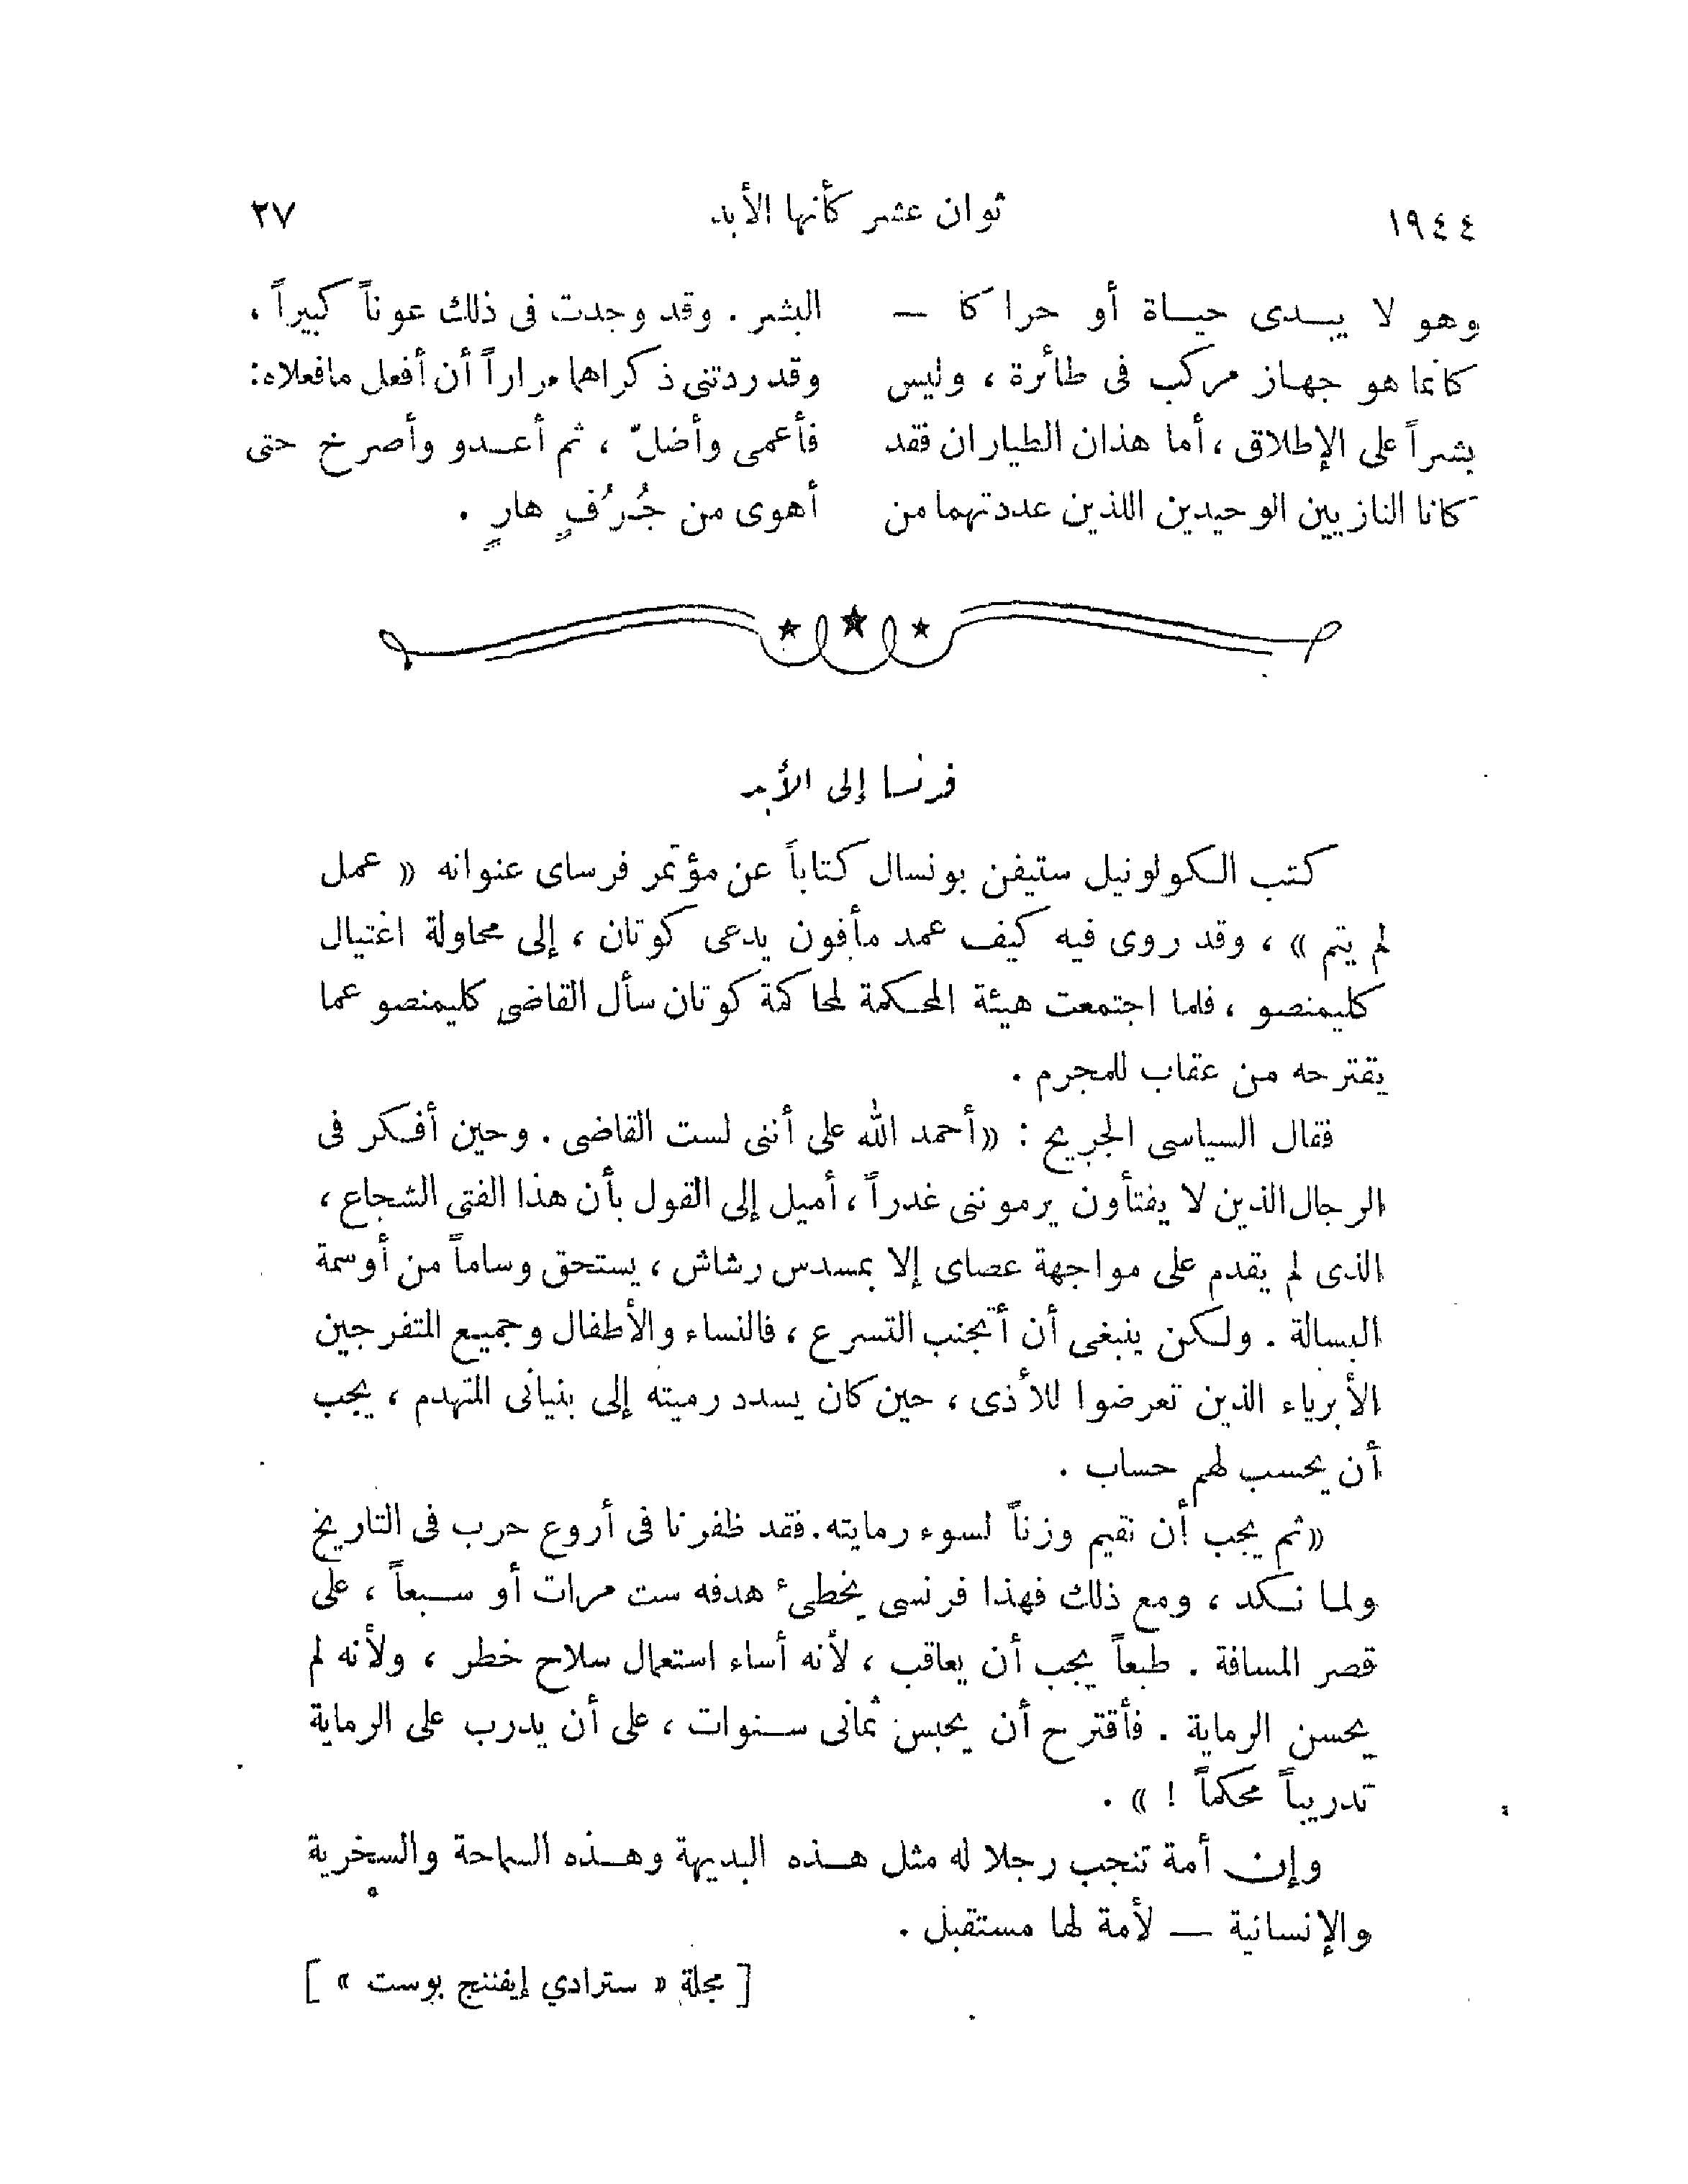 ١٩٤٤
ثوان عشر كأنها الأبد
٢٧
وهو لا يبدى حياة أو حراكا —
كأنما هو جهاز مركب فى طائرة ، وليس
بشراً على الإطلاق ، أما هذان الطياران فقد
كانا النازيين الوحيدين اللذين عددتهما من
البشر . وقد وجدت فى ذلك عوناً كبيراً ،
وقد ردتنى ذكراهما مراراً أن أفعل مافعلاه :
فأعمى وأضلّ ، ثم أعدو وأصرخ حتى
أهوى من جُرُفٍ هارٍ .
فرنسا إلى الأبد
كتب الكولونيل ستيفن بونسال كتاباً عن مؤتمر فرساى عنوانه « عمل
لم يتم » ، وقد روى فيه كيف عمد مأفون يدعى كوتان ، إلى محاولة اغتيال
كليمنصو ، فلما اجتمعت هيئة المحكمة لمحاكمة كوتان سأل القاضى كليمنصو عما
يقترحه من عقاب للمجرم .
فقال السياسى الجريح : «أحمد الله على أننى لست القاضى . وحين أفكر فى
الرجال الذين لا يفتأون يرموننى غدراً ، أميل إلى القول بأن هذا الفتى الشجاع ،
الذى لم يقدم على مواجهة عصاى إلا بمسدس رشاش ، يستحق وساماً من أوسمة
البسالة . ولكن ينبغى أن أتجنب التسرع ، فالنساء والأطفال وجميع المتفرجين
الأبرياء الذين تعرضوا للأذى ، حين كان يسدد رميته إلى بنيانى المتهدم ، يجب
أن يحسب لهم حساب .
«ثم يجب أن نقيم وزناً لسوء رمايته. فقد ظفرنا فى أروع حرب فى التاريخ
ولما نكد ، ومع ذلك فهذا فرنسى يخطىء هدفه ست مرات أو سبعاً ، على
قصر المسافة . طبعاً يجب أن يعاقب ، لأنه أساء استعمال سلاح خطر ، ولأنه لم
يحسن الرماية . فأقترح أن يحبس ثمانى سنوات ، على أن يدرب على الرماية
تدريباً محكماً ! » .
وإن أمة تنجب رجلا له مثل هذه البديهة وهذه السماحة والسخرية
والإنسانية — لأمة لها مستقبل .
[ مجلة « سترادي إيفننج بوست » ]